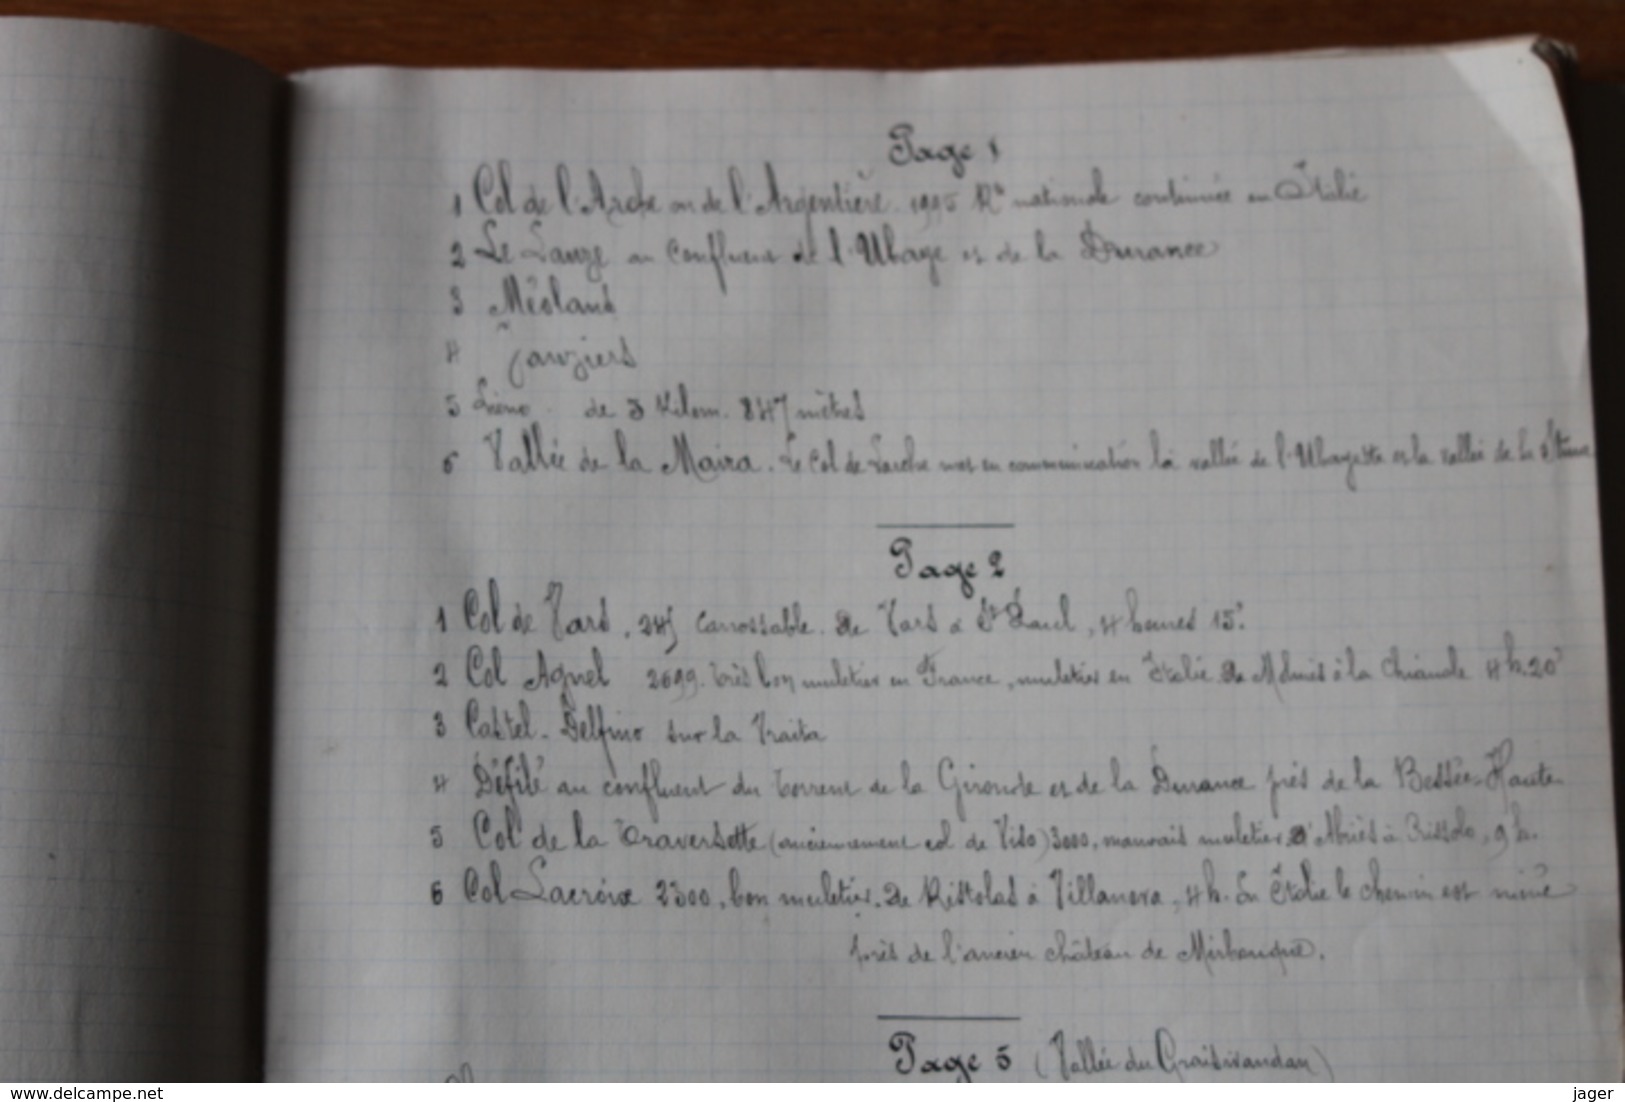 Page 1
1 Col de l'Arche ou de l'Argentière. 1995 Rte nationale continuée en Italie
2 Le Lauze au confluent de l'Ubaye et de la Durance
3 Méolans
4 Jauziers
5 de 3 Kilom. 847 mètres
6 Vallée de la Maira. Le Col de Larche met en communication la vallée de l'Ubayette et la vallée de la Stura
Page 2
1 Col de Vars, carrossable. De Vars à St Paul, 4 heures 15'.
2 Col Agnel 2699. très bon muletier en France, muletier en Italie. De Molines à la Chianale 4 h. 20'
3 Castel-Delfino sur la Vraita
4 Défilé au confluent du torrent de la Gironde et de la Durance près de la Bessée-Haute
5 Col de la Traversette (anciennement col de Viso) 3000, mauvais muletier, d'Abriès à Crissolo, 9 h.
6 Col Lacroix 2300, bon muletier. De Ristolas à Villanova, 4 h. En Italie le chemin est miné
près de l'ancien château de Mirbouque.
Page 5 (Vallée du Graisivaudan)
delcampe.net
jager